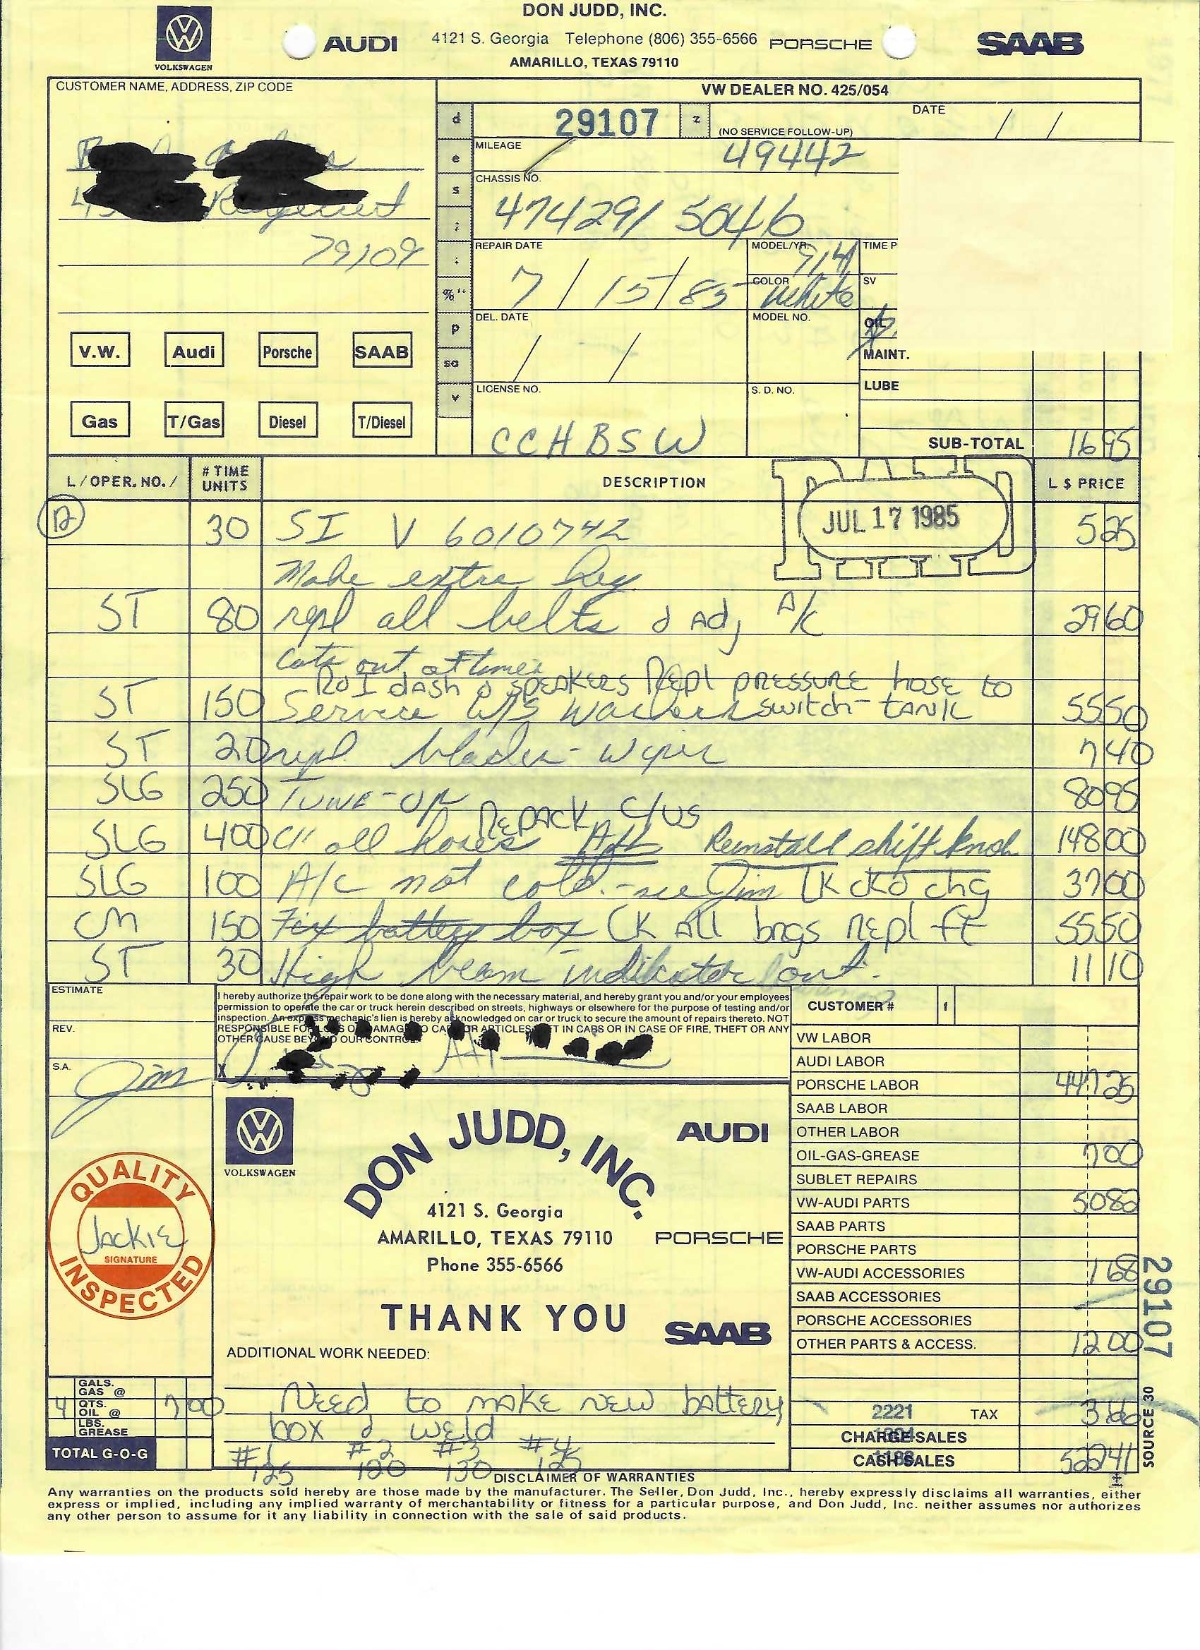 DON JUDD, INC.
VOLKSWAGEN AUDI 4121 S. Georgia Telephone (806) 355-6566 PORSCHE SAAB
AMARILLO, TEXAS 79110
CUSTOMER NAME, ADDRESS, ZIP CODE
VW DEALER NO. 425/054
29107
(NO SERVICE FOLLOW-UP)
DATE / /
MILEAGE 49442
CHASSIS NO.
474291 5046
79109
REPAIR DATE
7/15/85
MODEL/YR. 914
COLOR White
TIME P
SV
DEL. DATE / /
MODEL NO.
OIL
MAINT.
V.W. Audi Porsche SAAB
LICENSE NO.
CCHBSW
S. D. NO.
LUBE
Gas T/Gas Diesel T/Diesel
SUB-TOTAL 1695
L/OPER. NO./ # TIME UNITS DESCRIPTION L $ PRICE
PAID
JUL 17 1985
12 30 SI V 6010742 525
Make extra key
ST 80 repl all belts & Adj A/C 2960
Cuts out at times
R&I dash & speakers Repl pressure hose to
ST 150 Service W/S Washer switch-tank 5550
ST 20 repl blades-wiper 740
SLG 250 Tune-up 8095
Repack C/VS
SLG 400 all hoses Reinstall shift knob 14800
SLG 100 A/C not cold.-see Jim CK chg 3700
CM 150 Fix battery box CK All brgs Repl ft 5550
ST 30 High beam indicator out. 1110
ESTIMATE
REV.
S.A. Jim
I hereby authorize the repair work to be done along with the necessary material, and hereby grant you and/or your employees
permission to operate the car or truck herein described on streets, highways or elsewhere for the purpose of testing and/or
inspection. An express mechanic's lien is hereby acknowledged on car or truck to secure the amount of repairs thereto. NOT
RESPONSIBLE FOR LOSS OR DAMAGE TO CAR OR ARTICLES LEFT IN CARS OR IN CASE OF FIRE, THEFT OR ANY
OTHER CAUSE BEYOND OUR CONTROL.
X
CUSTOMER #
VW LABOR
AUDI LABOR
PORSCHE LABOR 44725
SAAB LABOR
OTHER LABOR
OIL-GAS-GREASE 700
SUBLET REPAIRS
VW-AUDI PARTS 5082
SAAB PARTS
PORSCHE PARTS
VW-AUDI ACCESSORIES 168
SAAB ACCESSORIES
PORSCHE ACCESSORIES
OTHER PARTS & ACCESS. 1200
2221 TAX 366
CHARGE SALES
CASH SALES 52241
VOLKSWAGEN
AUDI
DON JUDD, INC.
4121 S. Georgia
AMARILLO, TEXAS 79110
Phone 355-6566
PORSCHE
THANK YOU
SAAB
QUALITY
Jackie
SIGNATURE
INSPECTED
29107
SOURCE 30
ADDITIONAL WORK NEEDED:
Need to make new battery
box & weld
#1 #2 #3 #4
125 120 130 125
GALS. GAS @
4 QTS. OIL @ 700
LBS. GREASE
TOTAL G-O-G
DISCLAIMER OF WARRANTIES
Any warranties on the products sold hereby are those made by the manufacturer. The Seller, Don Judd, Inc., hereby expressly disclaims all warranties, either
express or implied, including any implied warranty of merchantability or fitness for a particular purpose, and Don Judd, Inc. neither assumes nor authorizes
any other person to assume for it any liability in connection with the sale of said products.